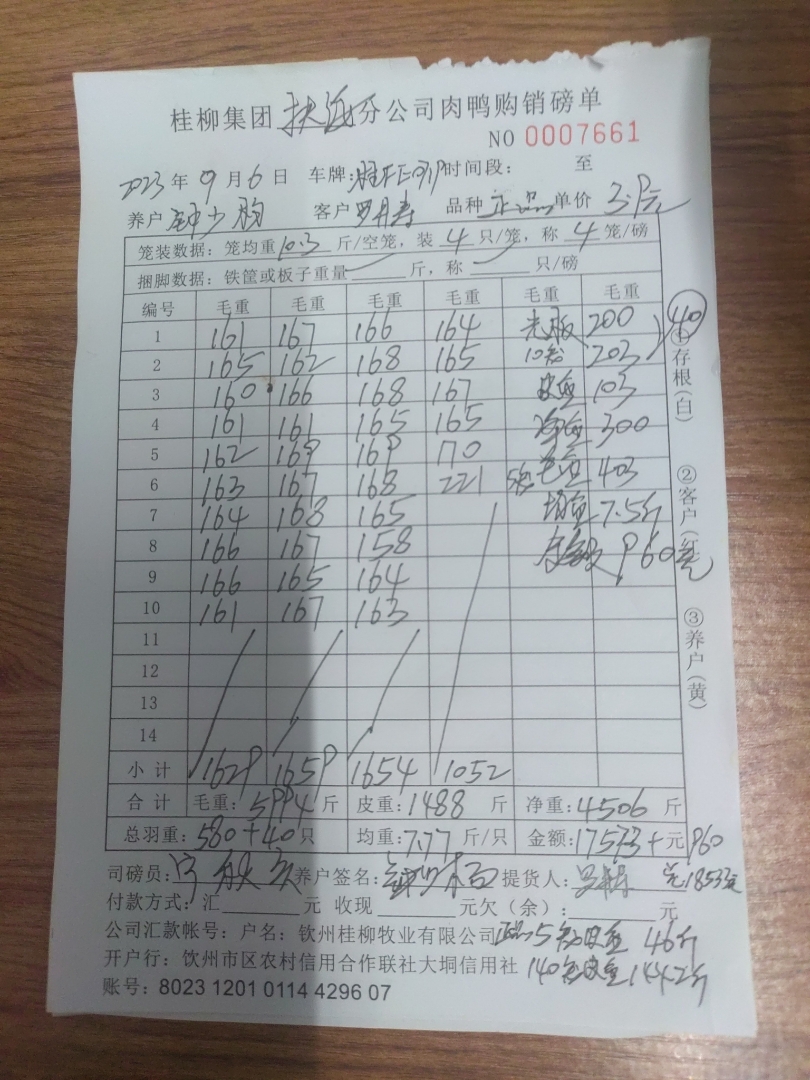 桂柳集团扶海分公司肉鸭购销磅单
NO 0007661
2023年9月6日 车牌: 时间段: 至
养户 钟少 客户 罗寿 品种 正品 单价 3.9元
笼装数据: 笼均重10.3斤/空笼, 装4只/笼, 称4笼/磅
捆脚数据: 铁筐或板子重量 斤, 称 只/磅
编号 毛重 毛重 毛重 毛重 毛重 毛重
1 161 167 166 164 光板 200 40
2 165 162 168 165 10笼 203
3 160 166 168 167 皮重 103
4 161 161 165 165 净重 300
5 162 169 169 170 毛重 403
6 163 167 168 221 5笼
7 164 168 165 均重 7.5斤
8 166 167 158 960元
9 166 165 164
10 161 167 163
11
12
13
14
小计 1629 1659 1654 1052
合计 毛重: 5994斤 皮重: 1488斤 净重: 4506斤
总羽重: 580+40只 均重: 7.77斤/只 金额: 17573+元 960
司磅员: 养户签名: 提货人: 18533元
付款方式: 汇 元 收现 元欠(余): 元
公司汇款帐号: 户名: 钦州桂柳牧业有限公司 正品5笼皮重 46斤
开户行: 钦州市区农村信用合作联社大垌信用社 140笼皮重1442斤
账号: 8023 1201 0114 4296 07
①存根(白)
②客户(红)
③养户(黄)